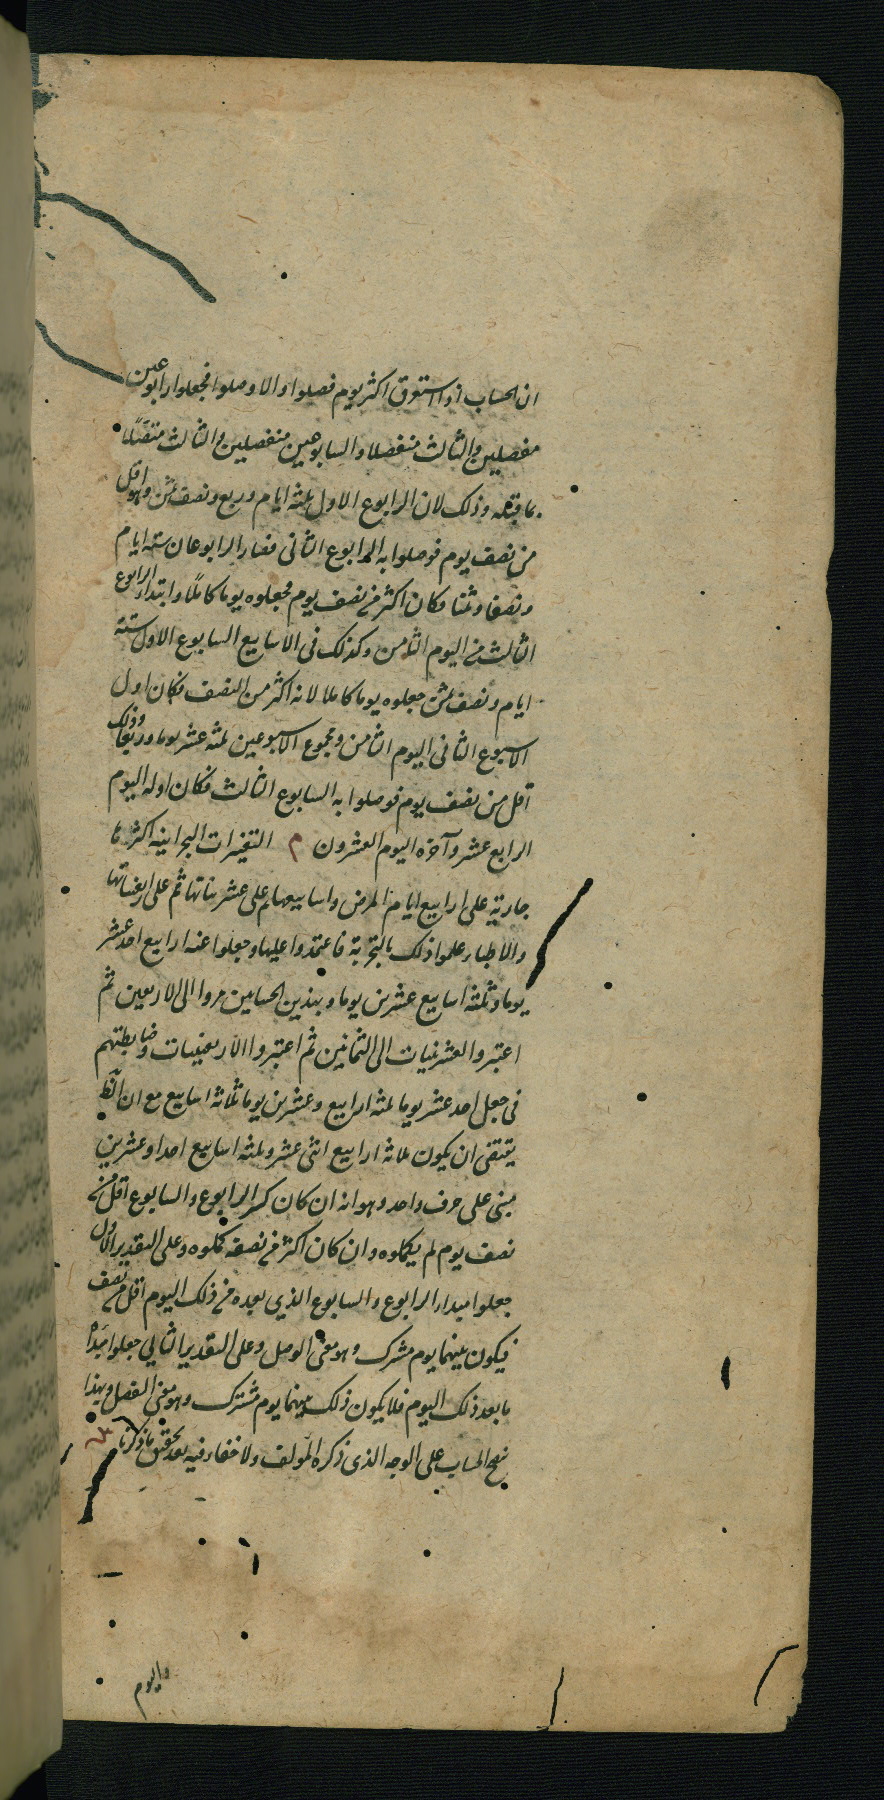 ان الحساب اذا استغرق اكثر يوم فصلوا والا وصلوا فجعلوا رابوعين
مفصلين والثالث منفصلا والسابوعين منفصلين والثالث متصلا
بما قبله وذلك لان الرابوع الاول ثلثة ايام وربع ونصف ثمن وهو اقل
من نصف يوم فوصلوا به الرابوع الثانى فصار الرابوعان ستة ايام
ونصفا وثمنا فكان اكثر من نصف يوم فجعلوه يوما كاملا وابتداء الرابوع
الثالث من اليوم الثامن وكذلك فى الاسابيع السابوع الاول ستة
ايام ونصف ثمن جعلوه يوما كاملا لانه اكثر من النصف فكان اول
الاسبوع الثانى اليوم الثامن ومجموع الاسبوعين ثلثة عشر يوما وربعا وذلك
اقل من نصف يوم فوصلوا به السابوع الثالث فكان اوله اليوم
الرابع عشر وآخره اليوم العشرون م التغيرات البحرانية اكثرها
جارية على ارابيع ايام المرض واسابيعها ثم على عشريناتها ثم على اربعيناتها
والاطباء علموا ذلك بالتجربة فاعتمدوا عليها وجعلوا عنه ارابيع احد عشر
يوما وثلثة اسابيع عشرين يوما وبهذين الحسابين مروا الى الاربعين ثم
اعتبروا العشرينيات الى الثمانين ثم اعتبروا الاربعينيات وضابطتهم
فى جعل احد عشر يوما ثلثة ارابيع وعشرين يوما ثلاثة اسابيع مع ان
يقتضى ان يكون ثلاثة ارابيع اثنى عشر وثلثة اسابيع احدا وعشرين
مبنى على حرف واحد وهو انه ان كان كسر الرابوع والسابوع اقل من
نصف يوم لم يكملوه وان كان اكثر من نصفه كملوه وعلى التقدير الاول
جعلوا مبداء الرابوع والسابوع الذي بعده من ذلك اليوم اقل من نصف
فيكون بينهما يوم مشترك وهو معنى الوصل وعلى التقدير الثاني جعلوا مبداء
ما بعد ذلك اليوم فلا يكون ذلك بينهما يوم مشترك وهو معنى الفصل وبهذا
يصح الحساب على الوجه الذى ذكره المولف ولا خفاء فيه بعد تحقق ما ذكرنا
واليوم